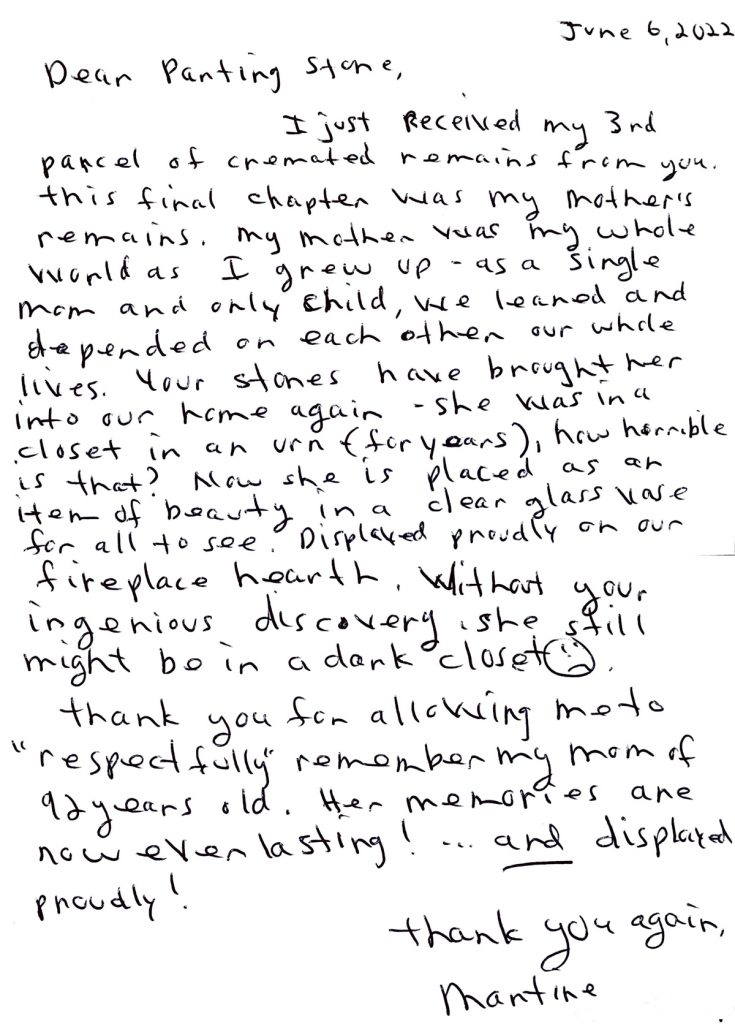 June 6, 2022
Dear Parting Stone,
I just received my 3rd
parcel of cremated remains from you.
this final chapter was my mother's
remains. My mother was my whole
world as I grew up - as a single
mom and only child, we leaned and
depended on each other our whole
lives. Your stones have brought her
into our home again - she was in a
closet in an urn (for years), how horrible
is that? Now she is placed as an
item of beauty in a clear glass vase
for all to see. Displayed proudly on our
fireplace hearth. Without your
ingenious discovery, she still
might be in a dark closet ☹.
thank you for allowing me to
"respectfully" remember my mom of
92 years old. Her memories are
now everlasting! ... and displayed
proudly!
thank you again,
Martine